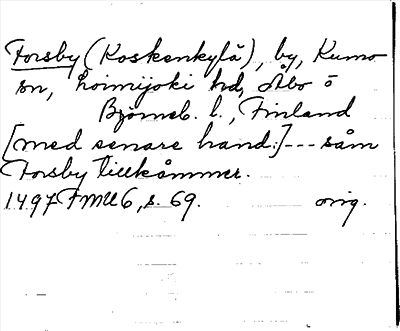 Forsby (Koskenkylä), by, Kumo
sn, Loimijoki hd, Åbo o
Björneb. l., Finland
[med senare hand:] --- såm
Forsby tillkåmmer.
1497 FMU 6, s. 69. orig.